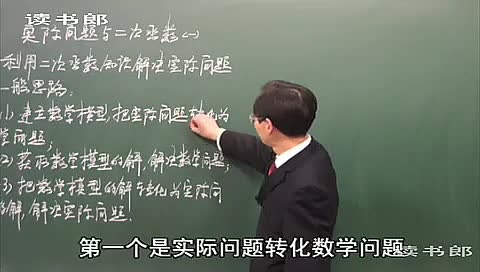 读书郎
实际问题与二次函数(一)
利用二次函数知识解决实际问题
一般思路:
(1)建立数学模型,把实际问题转化为
学问题;
(2)获取数学模型的解,解决数学问题;
(3)把数学模型的解转化为实际问
的解,解决实际问题.
第一个是实际问题转化数学问题
读书郎